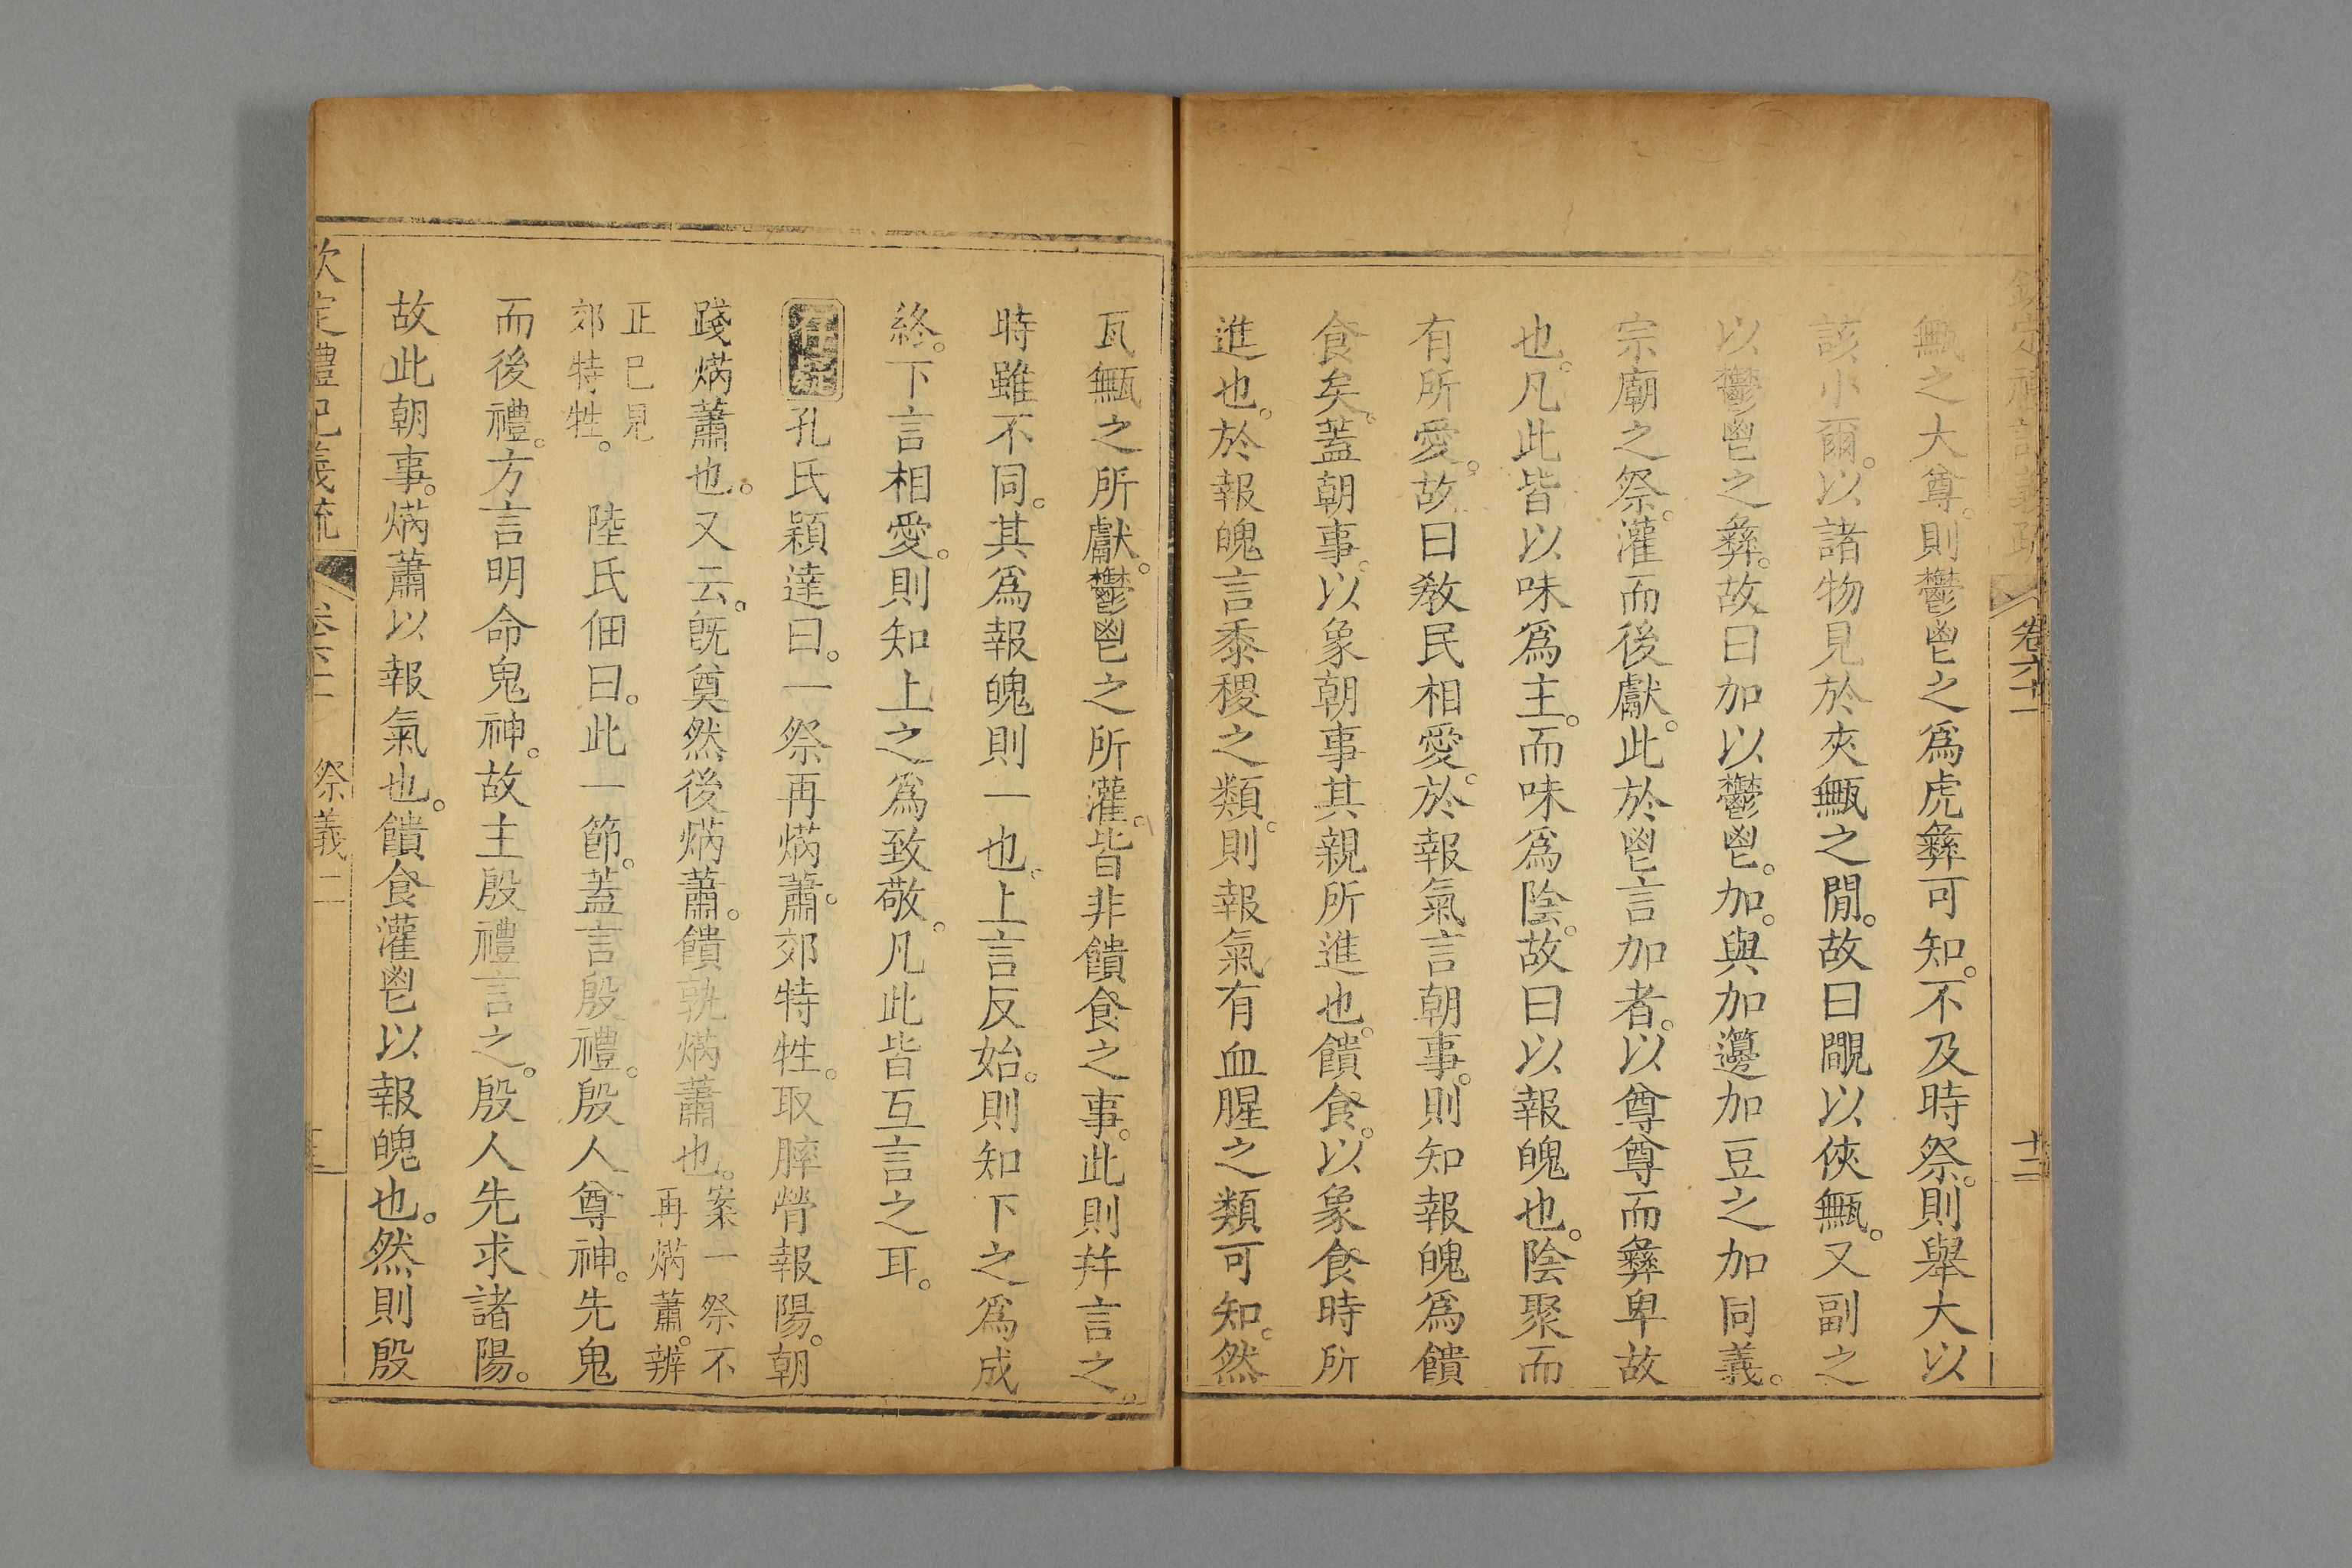 欽定禮記義疏 卷六十一 十二
甒之大尊。則鬱鬯之爲虎彝可知。不及時祭。則舉大以
該小爾。以諸物見於夾甒之閒。故曰覸以俠甒。又副之
以鬱鬯之彝。故曰加以鬱鬯。加。與加籩加豆之加同義。
宗廟之祭。灌而後獻。此於鬯言加者。以尊尊而彝卑故
也。凡此皆以味爲主。而味爲陰。故曰以報魄也。陰聚而
有所愛。故曰敎民相愛。於報氣言朝事。則知報魄爲饋
食矣。蓋朝事。以象朝事其親所進也。饋食。以象食時所
進也。於報魄言黍稷之類。則報氣有血腥之類可知。然
瓦甒之所獻。鬱鬯之所灌。皆非饋食之事。此則幷言之。
時雖不同。其爲報魄則一也。上言反始。則知下之爲成
終。下言相愛。則知上之爲致敬。凡此皆互言之耳。
孔氏穎達曰。一祭再焫蕭。郊特牲。取膟膋報陽。朝
踐焫蕭也。又云。旣奠然後焫蕭。饋孰焫蕭也。案一祭不再焫蕭。辨
正已見郊特牲。 陸氏佃曰。此一節。蓋言殷禮。殷人尊神。先鬼
而後禮。方言明命鬼神。故主殷禮言之。殷人先求諸陽。
故此朝事。焫蕭以報氣也。饋食灌鬯以報魄也。然則殷
欽定禮記義疏 祭義二